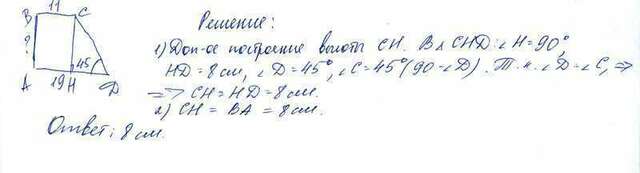 B 11 C
Решение:
?
1) Доп-ое построение высоты CH. В ∆ CHD: ∠H=90°,
45
HD=8 см, ∠D=45°, ∠C=45°(90-∠D). Т.к. ∠D=∠C, =>
A 19 H D
=> CH=HD=8 см.
2) CH = BA = 8 см.
Ответ: 8 см.